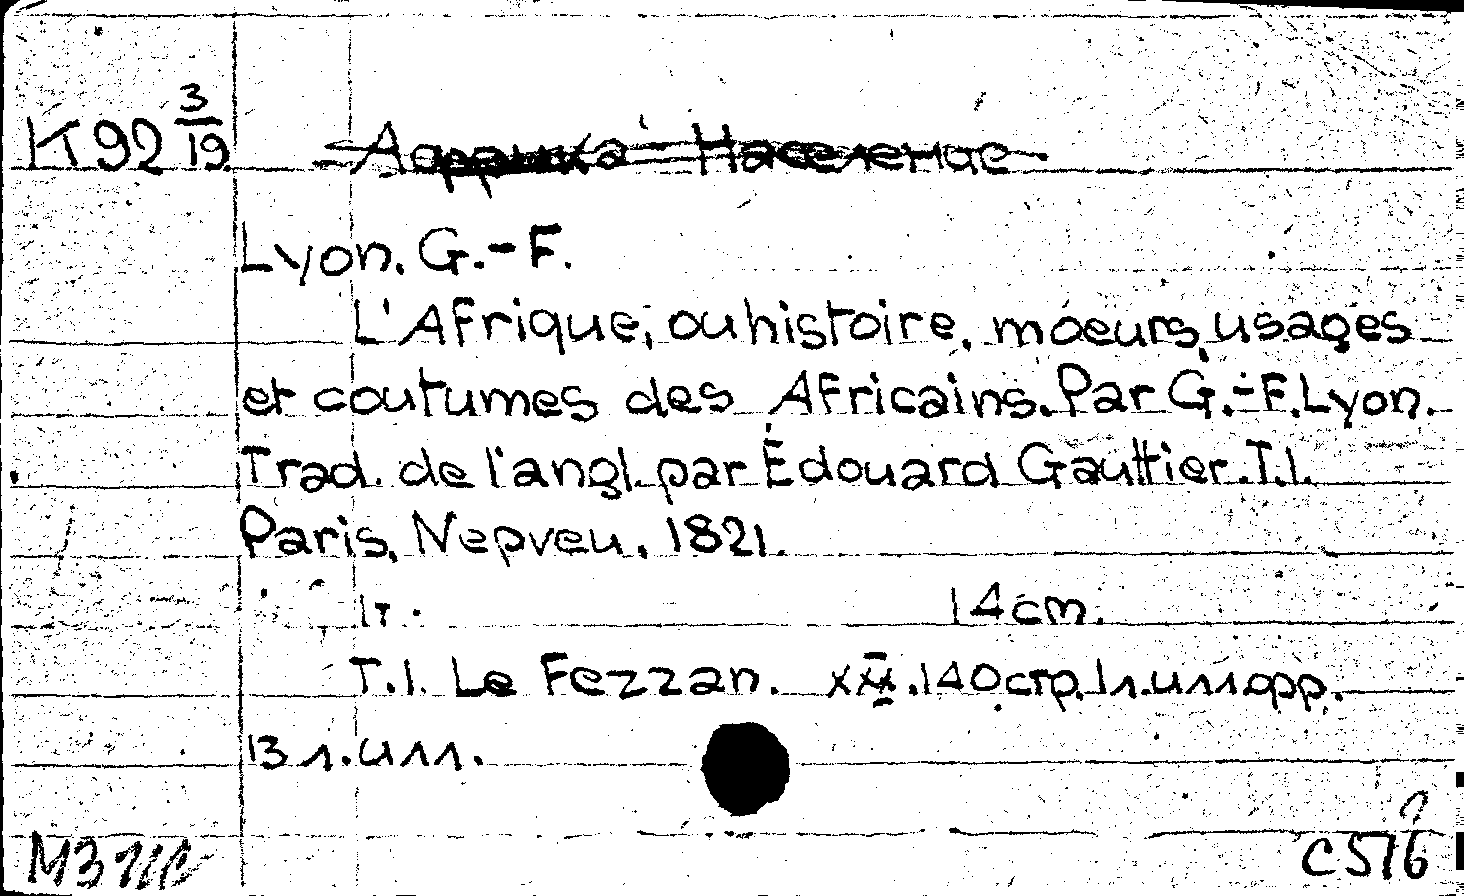 К92 3/19
Африка - Население
Lyon. G.-F.
L'Afrique, ou histoire, moeurs, usages
et coutumes des Africains. Par G.-F. Lyon.
Trad. de l'angl. par Édouard Gauttier. T.1.
Paris, Nepveu, 1821.
1т. 14cm.
T.1. Le Fezzan. 140стр, 1л. илл. фр.
13 л. илл.
МЗ
C576